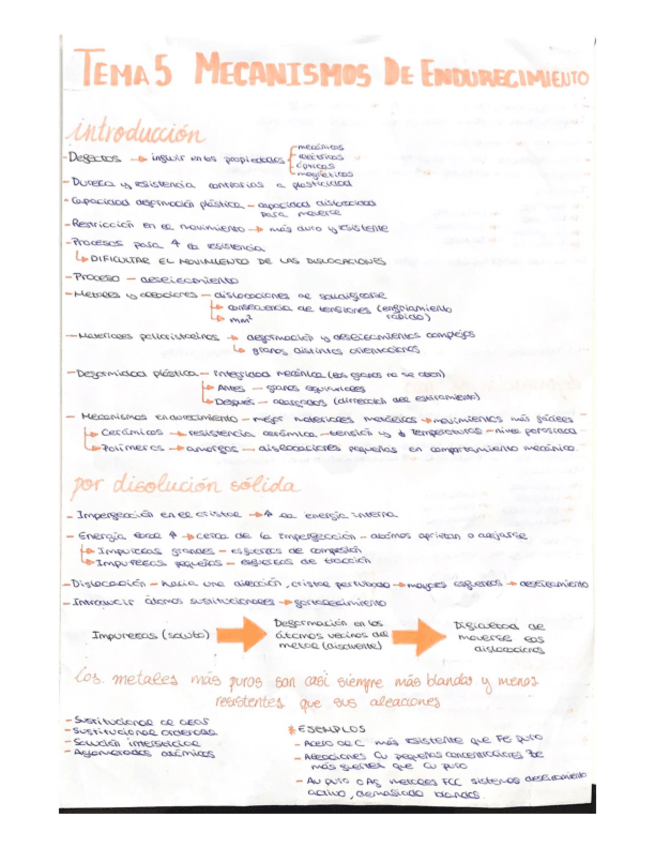 TEMA 5 MECANISMOS DE ENDURECIMIENTO
introducción
- Defectos → influir en las propiedades { mecánicas
eléctricas
ópticas
magnéticas
- Dureza y resistencia contrarias a plasticidad
- Capacidad deformación plástica - capacidad dislocación
para moverse
- Restricción en el movimiento → más duro y resistente
- Procesos para ↑ la resistencia
↳ DIFICULTAR EL MOVIMIENTO DE LAS DISLOCACIONES
- Proceso - deslizamiento
- Metales y aleaciones - dislocaciones al solidificarse
↳ consecuencia de tensiones (enfriamiento
rápido)
↳ mm²
- Materiales policristalinos → deformación y deslizamientos complejos
↳ granos distintas orientaciones
- Deformidad plástica - Integridad mecánica (los granos no se abren)
↳ Antes - granos equiaxiales
↳ Después - alargados (dirección del estiramiento)
- Mecanismos endurecimiento - mejor materiales metálicos → movimientos más fáciles
↳ Cerámicos → resistencia cerámica - tensión y Temperaturas - nivel porosidad
↳ Polímeros → amorfos - dislocaciones pequeñas en comportamiento mecánico.
por disolución sólida
- Imperfección en el cristal → ↑ la energía interna
- Energía local ↑ → cerca de la imperfección - átomos aprietan o alejarse
↳ Impurezas grandes - esfuerzos de compresión
↳ Impurezas pequeñas - esfuerzos de tracción
- Dislocación - hacia una dirección, cristal perturbado → mayores esfuerzos → deslizamiento
- Introducir átomos sustitucionales → fortalecimiento
Impurezas (soluto) → Deformación en los
átomos vecinos del
metal (disolvente) → Dificultad de
moverse las
dislocaciones
Los metales más puros son casi siempre más blandos y menos
resistentes que sus aleaciones
- Sustitucional al azar
- Sustitucional ordenada
- Solución intersticial
- Aglomerados atómicos
* EJEMPLOS
- Acero de C más resistente que Fe puro
- Aleaciones Cu pequeñas concentraciones Be
más fuertes que Cu puro
- Au puro o Ag metales FCC sistemas deslizamiento
activo, demasiado blandos.